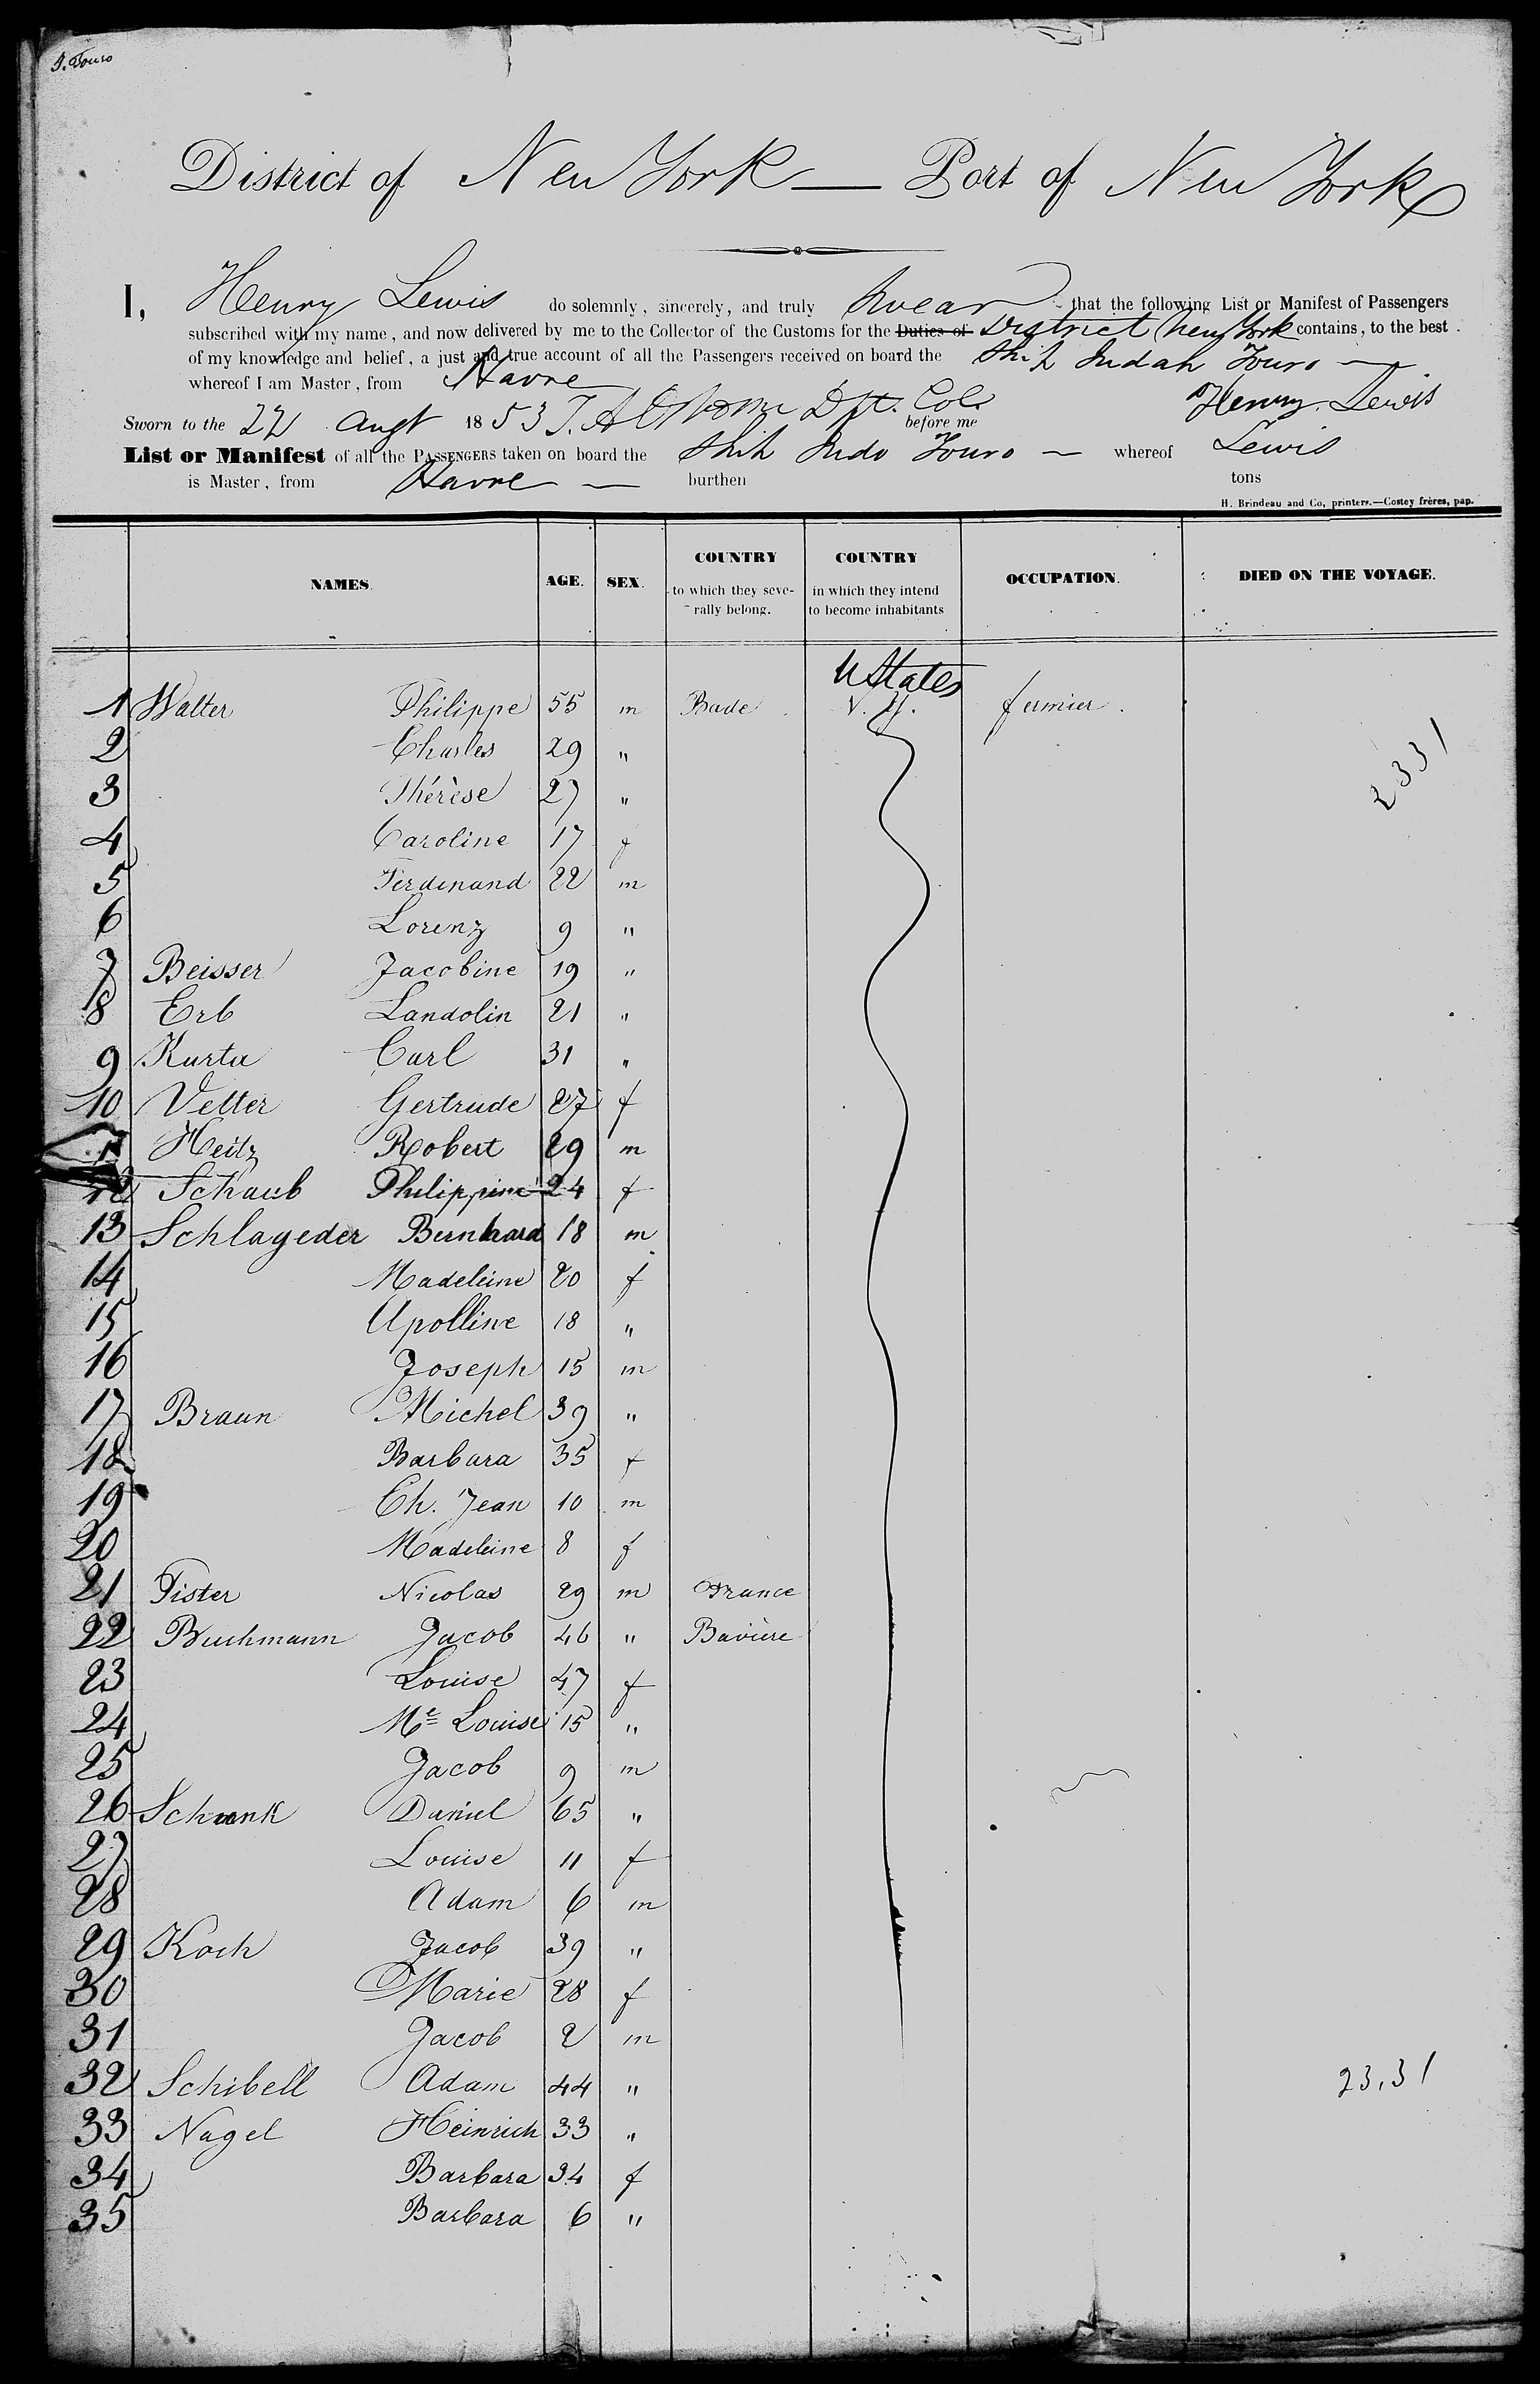 J. Touro
District of New York — Port of New York
I, Henry Lewis do solemnly, sincerely, and truly swear that the following List or Manifest of Passengers
subscribed with my name, and now delivered by me to the Collector of the Customs for the Duties of District New York contains, to the best
of my knowledge and belief, a just and true account of all the Passengers received on board the Ship Judah Touro —
whereof I am Master, from Havre
Henry Lewis
Sworn to the 22 Augt 1853 Dpt. Col. before me
List or Manifest of all the PASSENGERS taken on board the Ship Judo Touro — whereof Lewis
is Master, from Havre — burthen tons
H. Brindeau and Co, printers.—Costey frères, pap.
NAMES. AGE. SEX. COUNTRY to which they seve-rally belong. COUNTRY in which they intend to become inhabitants OCCUPATION. DIED ON THE VOYAGE.
U States
1 Walter Philippe 55 m Bade fermier.
2 Charles 29 "
2331
3 Thérèse 27 "
4 Caroline 17 f
5 Ferdinand 22 m
6 Lorenz 9 "
7 Beisser Jacobine 19 "
8 Erb Landolin 21 "
9 Kurta Carl 31 "
10 Vetter Gertrude 27 f
11 Heitz Robert 29 m
12 Schaub Philippine 24 f
13 Schlageder Bernhard 18 m
14 Madeleine 20 f
15 Apolline 18 "
16 Joseph 15 m
17 Braun Michel 39 "
18 Barbara 35 f
19 Ch. Jean 10 m
20 Madeleine 8 f
21 Fister Nicolas 29 m France
22 Buchmann Jacob 46 " Bavière
23 Louise 47 f
24 Me Louise 15 "
25 Jacob 9 m
26 Schunk Daniel 65 "
27 Louise 11 f
28 Adam 6 m
29 Koch Jacob 39 "
30 Marie 28 f
31 Jacob 2 m
32 Schibell Adam 44 " 23,31
33 Nagel Heinrich 33 "
34 Barbara 34 f
35 Barbara 6 "